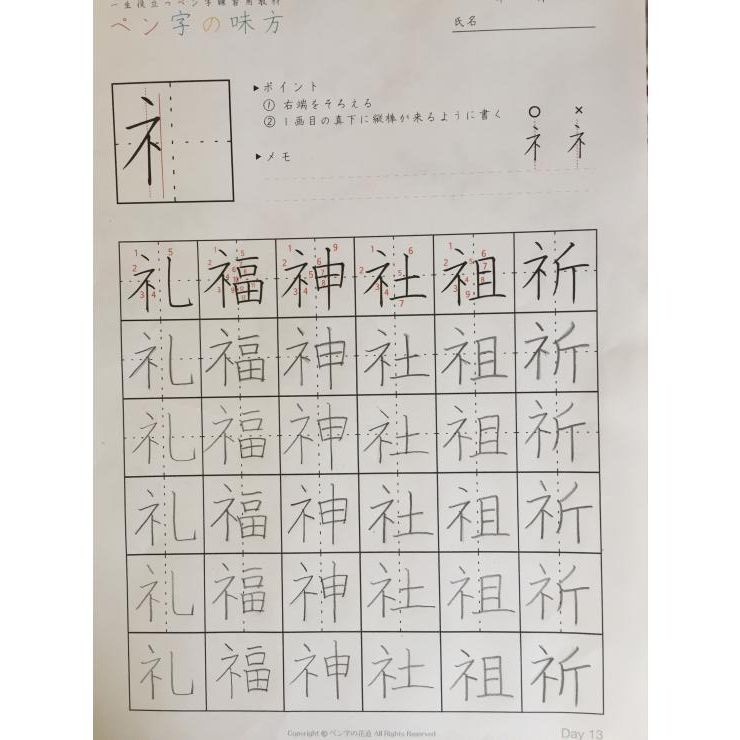 一生役立つペン字練習用教材
ペン字の味方
氏名
▶ポイント
① 右端をそろえる
② 1画目の真下に縦棒が来るように書く
○ ×
ネ
ネ ネ
▶メモ
礼 福 神 社 祖 祈
礼 福 神 社 祖 祈
礼 福 神 社 祖 祈
礼 福 神 社 祖 祈
礼 福 神 社 祖 祈
礼 福 神 社 祖 祈
Copyright © ペン字の花道 All Rights Reserved
Day 13